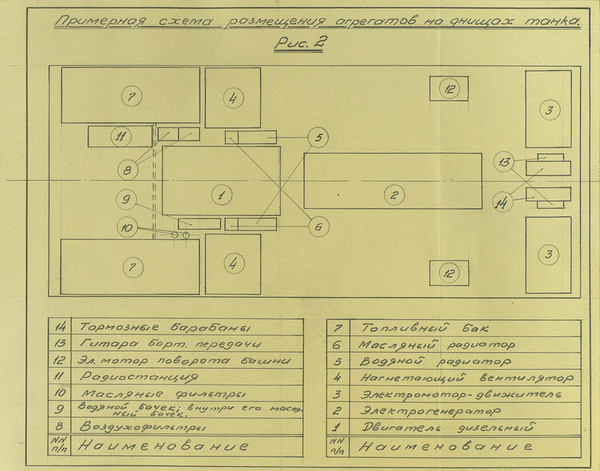 Примерная схема размещения агрегатов на днищах танка.
Рис. 2
7
4
12
3
11
5
8
13
1
2
9
14
10
6
7
4
12
3
14 Тормозные барабаны
13 Гитара борт. передачи
12 Эл. мотор поворота башни
11 Радиостанция
10 Масляные фильтры
9 Водяной бачек, внутри его масля-
ный бачек.
8 Воздухофильтры
NN п/п Наименование
7 Топливный бак
6 Масляный радиатор
5 Водяной радиатор
4 Нагнетающий вентилятор
3 Электромотор-движитель
2 Электрогенератор
1 Двигатель дизельный
NN п/п Наименование